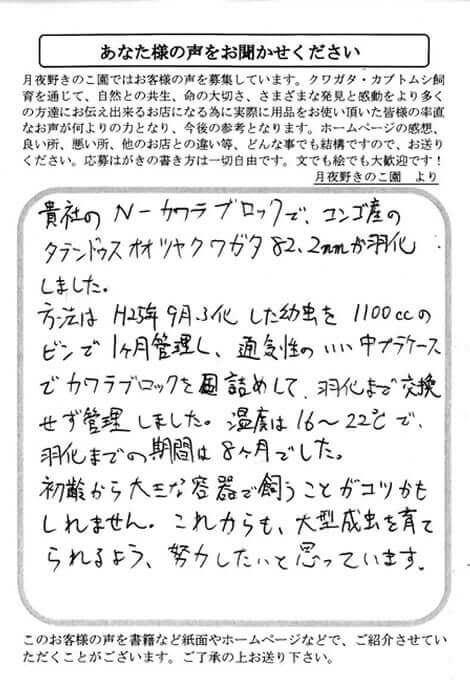 あなた様の声をお聞かせください
月夜野きのこ園ではお客様の声を募集しています。クワガタ・カブトムシ飼
育を通じて、自然との共生、命の大切さ、さまざまな発見と感動をより多く
の方達にお伝え出来るお店になる為に実際に用品をお使い頂いた皆様の率直
なお声が何よりの力となり、今後の参考となります。ホームページの感想、
良い所、悪い所、他のお店との違い等、どんな事でも結構ですので、お送り
ください。応募はがきの書き方は一切自由です。文でも絵でも大歓迎です！
月夜野きのこ園　より
貴社のN－カワラブロックで、コンゴ産の
タランドゥスオオツヤクワガタ82.2mmが羽化
しました。
方法はH25年9月ふ化した幼虫を1100ccの
ビンで1ヶ月管理し、通気性のいい中プラケース
でカワラブロックを詰めして、羽化まで交換
せず管理しました。温度は16～22℃で、
羽化までの期間は8ヶ月でした。
初齢から大きな容器で飼うことがコツかも
しれません。これからも、大型成虫を育て
られるよう、努力したいと思っています。
このお客様の声を書籍など紙面やホームページなどで、ご紹介させてい
ただくことがございます。ご了承の上お送り下さい。